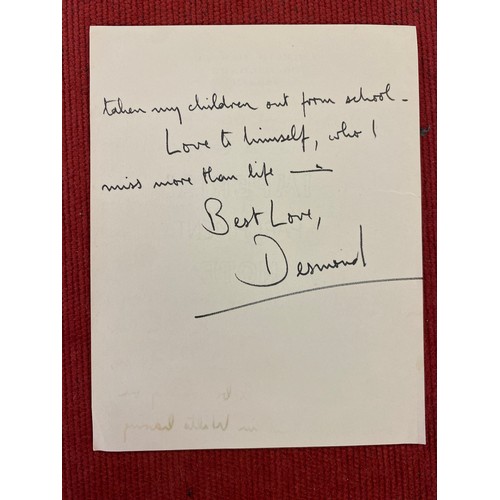 taken my children out from school –
Love to himself, who I
miss more than life —
Best Love,
Desmond